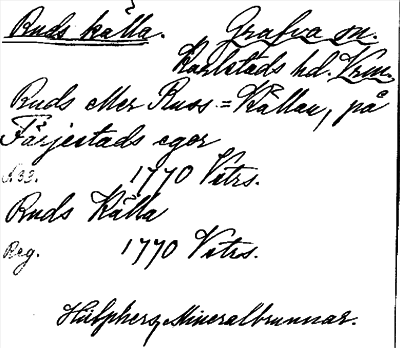 Ruds källa. Grafva sn.
Karlstads hd. Vrm.
Ruds eller Russ=Källan, på
Färjestads egor
s. 33. 1770 Vetrs.
Ruds Källa
Reg. 1770 Vetrs.
Hülphers, Mineralbrunnar.